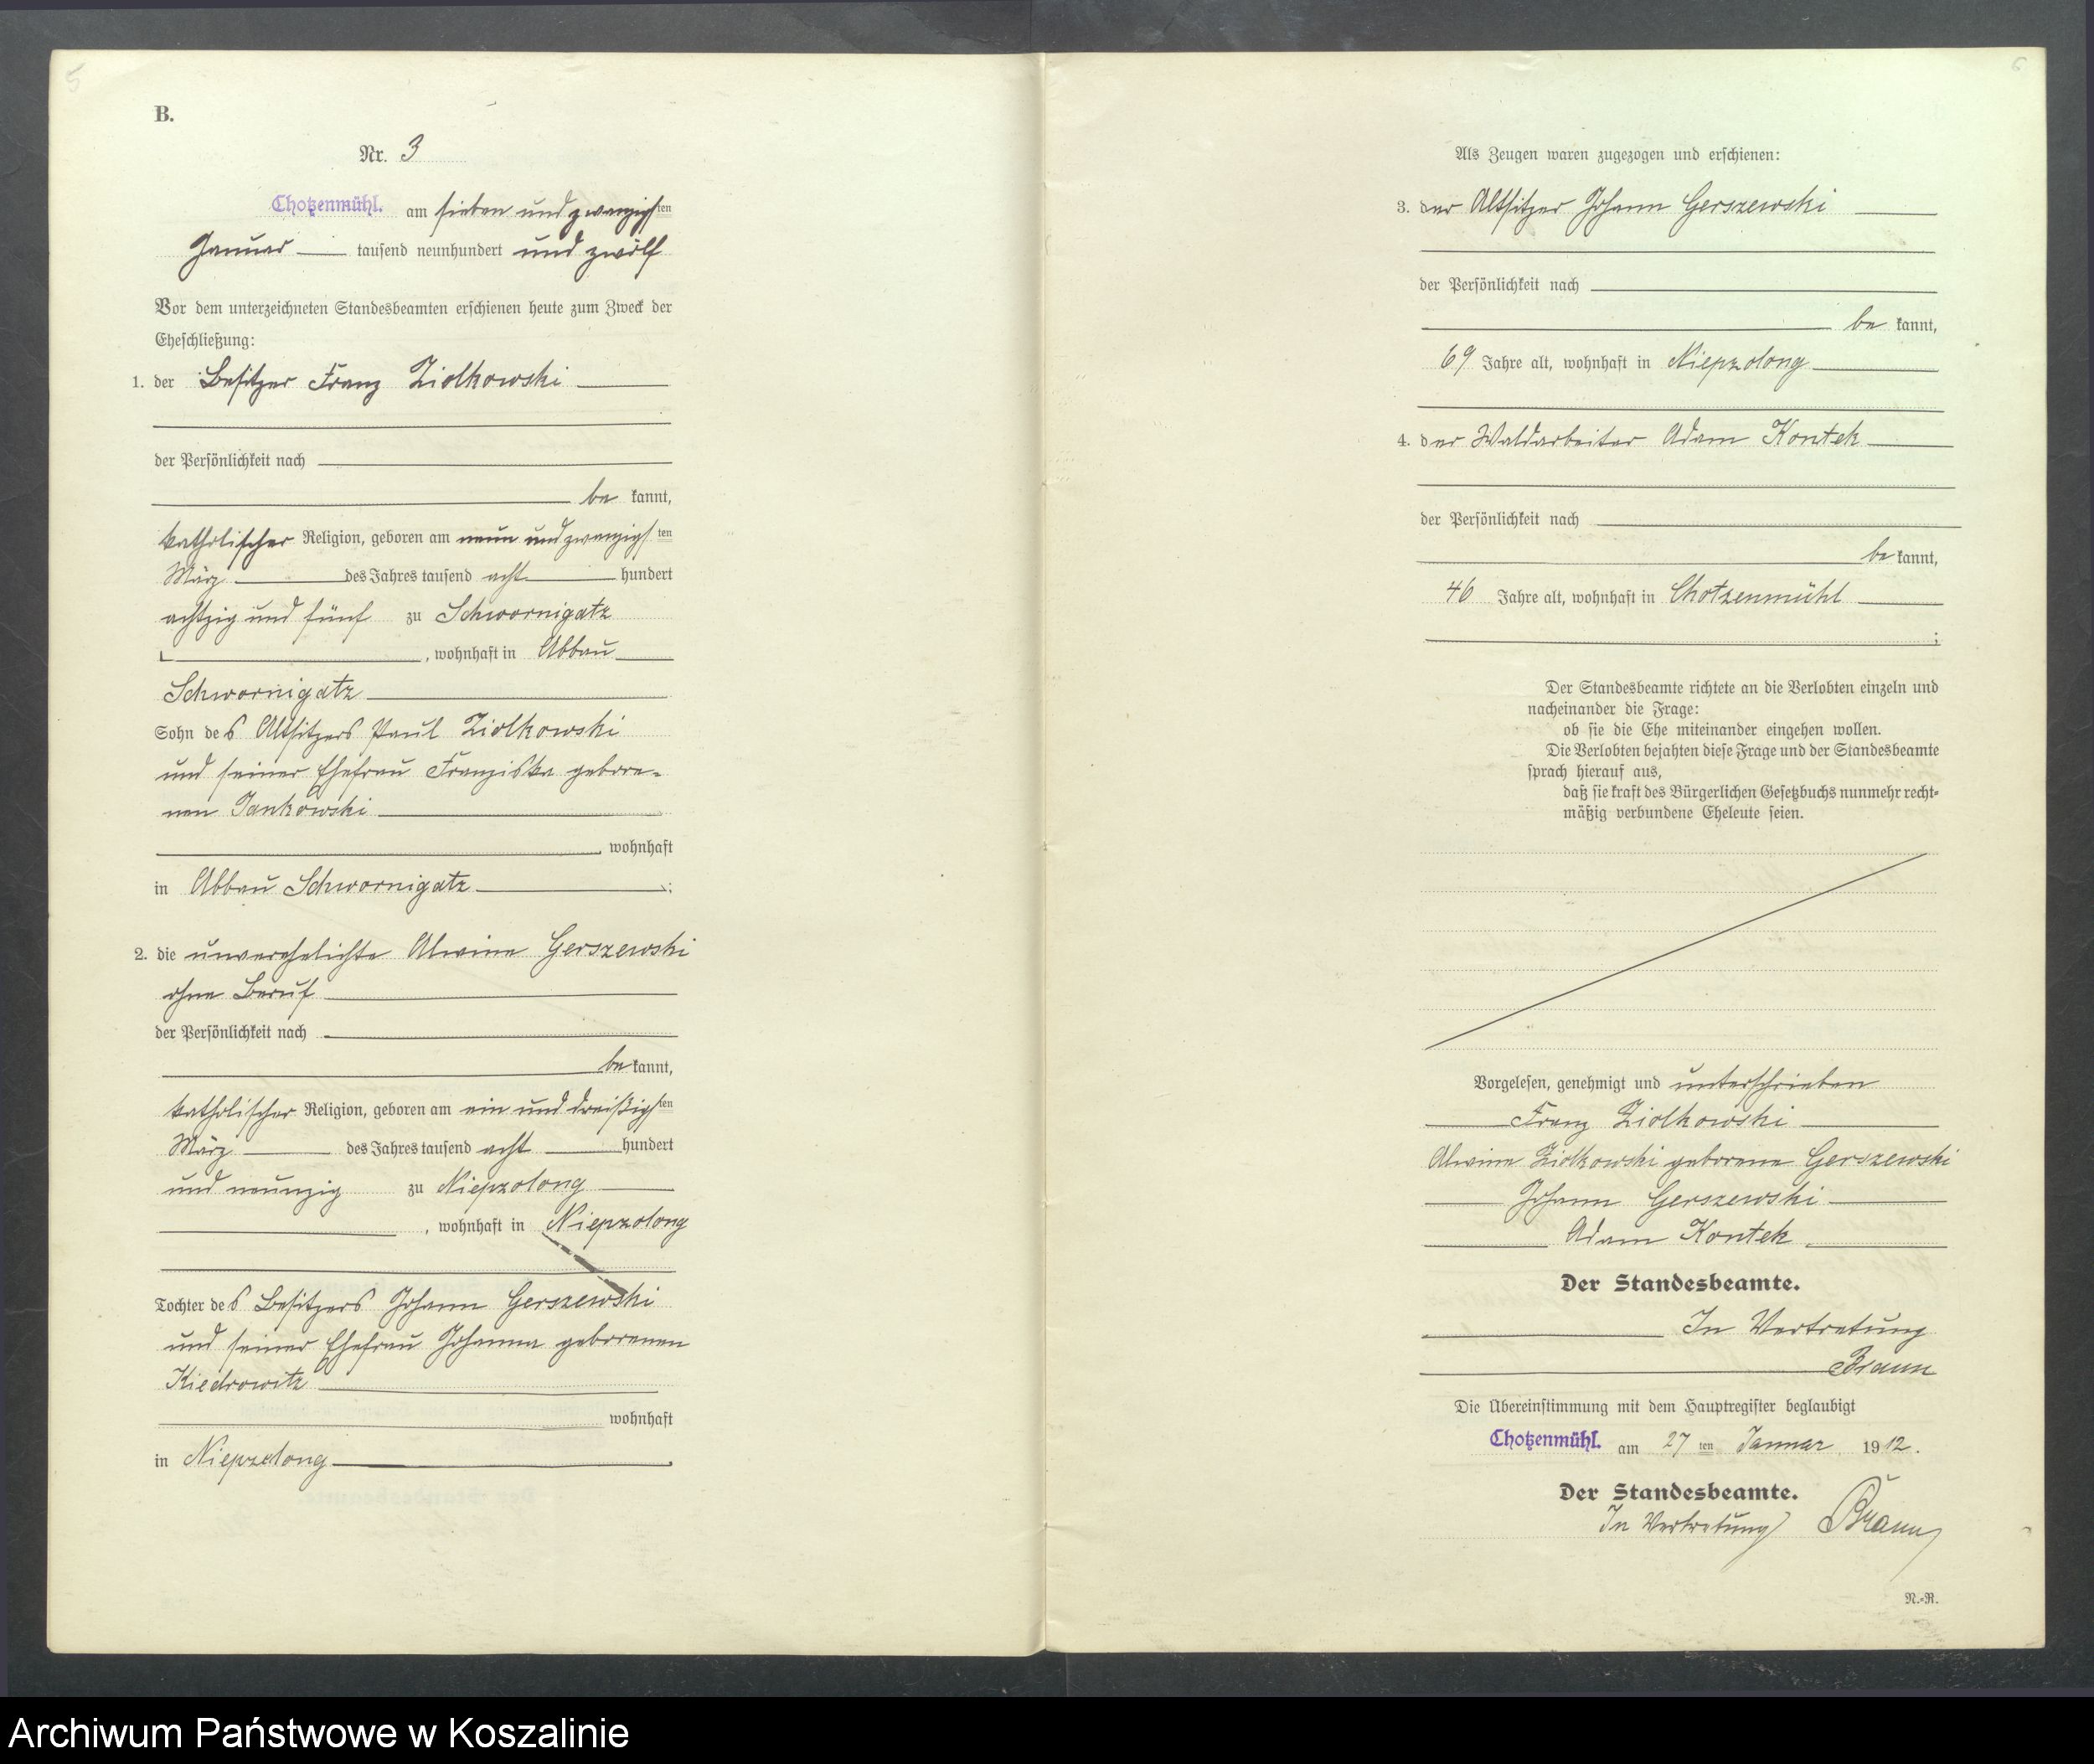 5
B.
Nr. 3
Chotzenmühl. am sieben und zwanzigsten
Januar tausend neunhundert und zwölf
Vor dem unterzeichneten Standesbeamten erschienen heute zum Zweck der
Eheschließung:
1. der Besitzer Franz Ziolkowski
der Persönlichkeit nach
be kannt,
katholischer Religion, geboren am neun und zwanzigsten
März des Jahres tausend acht hundert
achtzig und fünf zu Schwornigatz
, wohnhaft in Abbau
Schwornigatz
Sohn des Altsitzers Paul Ziolkowski
und seiner Ehefrau Franziska gebore-
nen Jankowski
, wohnhaft
in Abbau Schwornigatz ;
2. die unverehelichte Alwine Gerszewski
ohne Beruf
der Persönlichkeit nach
be kannt,
katholischer Religion, geboren am ein und dreißigsten
März des Jahres tausend acht hundert
und neunzig zu Niepzolong
, wohnhaft in Niepzolong
Tochter des Besitzers Johann Gerszewski
und seiner Ehefrau Johanna geborenen
Kiedrowitz
wohnhaft
in Niepzolong .
6
Als Zeugen waren zugezogen und erschienen:
3. der Altsitzer Johann Gerszewski
der Persönlichkeit nach
be kannt,
69 Jahre alt, wohnhaft in Niepzolong
4. der Waldarbeiter Adam Kontek
der Persönlichkeit nach
be kannt,
46 Jahre alt, wohnhaft in Chotzenmühl
;
Der Standesbeamte richtete an die Verlobten einzeln und
nacheinander die Frage:
ob sie die Ehe miteinander eingehen wollen.
Die Verlobten bejahten diese Frage und der Standesbeamte
sprach hierauf aus,
daß sie kraft des Bürgerlichen Gesetzbuchs nunmehr recht-
mäßig verbundene Eheleute seien.
Vorgelesen, genehmigt und unterschrieben
Franz Ziolkowski
Alwine Ziolkowski geborene Gerszewski
Johann Gerszewski
Adam Kontek.
Der Standesbeamte.
In Vertretung
Braun
Die Übereinstimmung mit dem Hauptregister beglaubigt
Chotzenmühl. am 27 ten Januar 1912.
Der Standesbeamte.
In Vertretung Braun
N.-R.
Archiwum Państwowe w Koszalinie